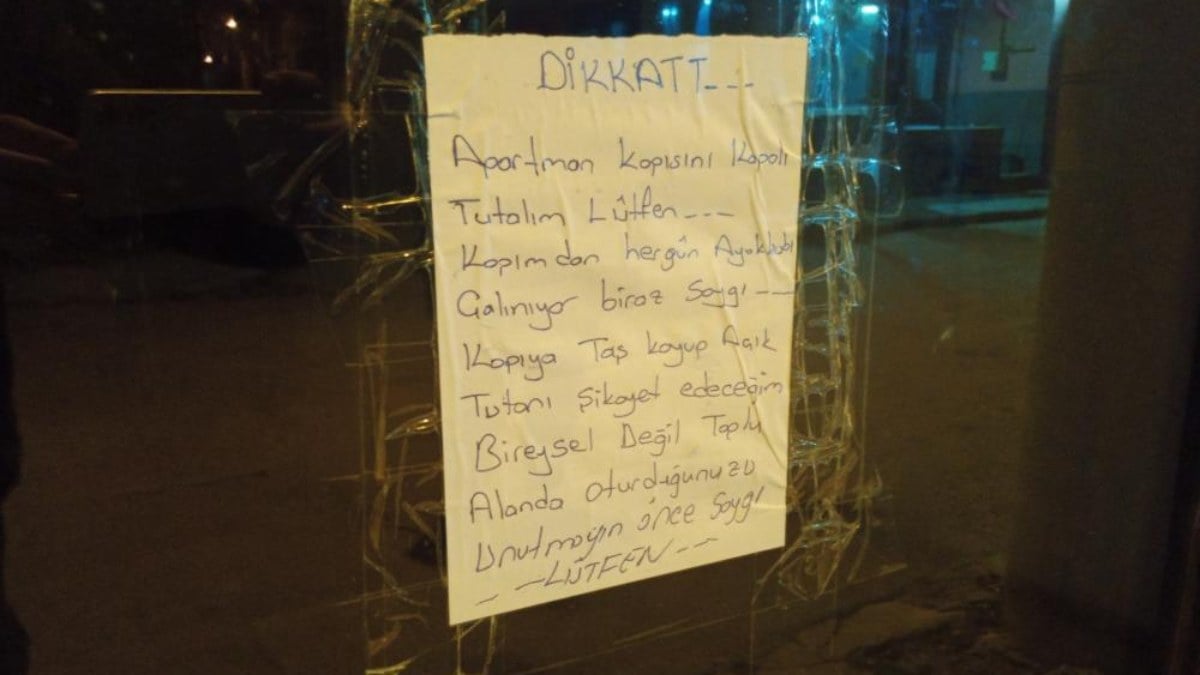 DİKKATT---
Apartman kapısını Kapalı
Tutalım Lütfen---
Kapımdan hergün Ayakkabı
Çalınıyor biraz Saygı---
Kapıya Taş koyup Açık
Tutanı Şikayet edeceğim
Bireysel Değil Toplu
Alanda oturduğunuzu
Unutmayın önce Saygı
--LÜTFEN--